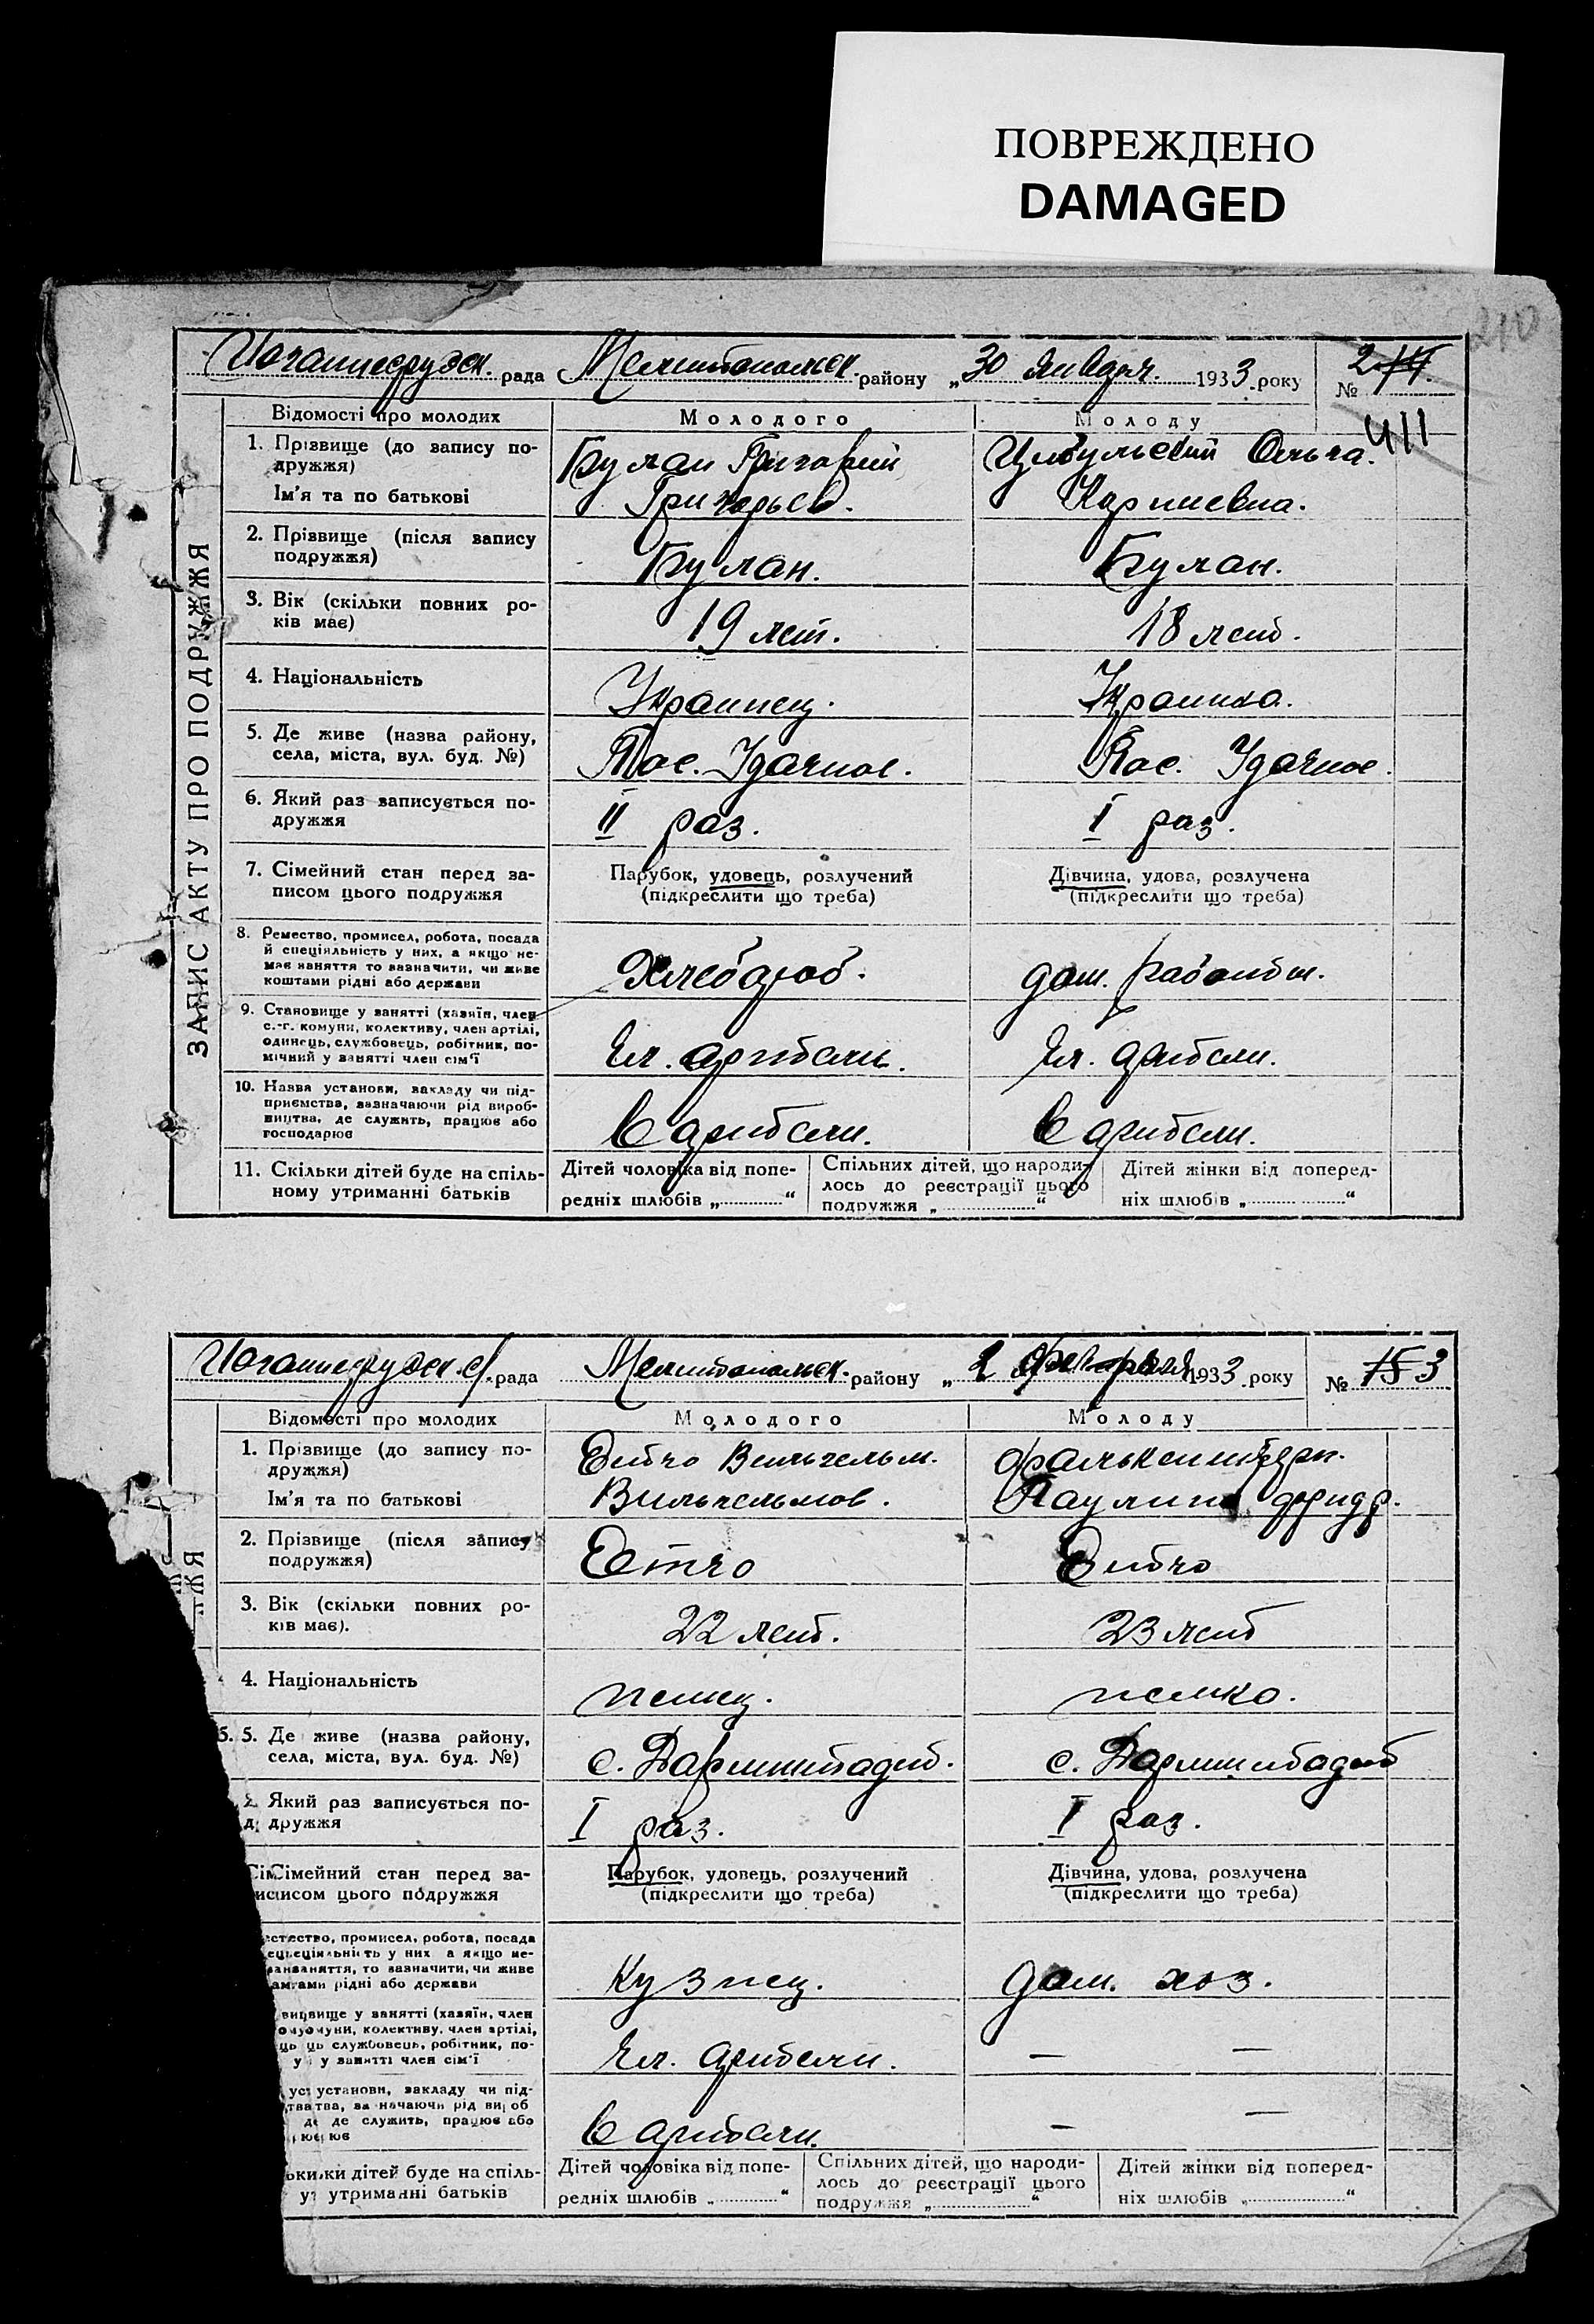 ПОВРЕЖДЕНО
DAMAGED
210
Иоганнесрудск. рада Мелитопольск. району „30 января. 1933. року № 2 14.
411
ЗАПИС АКТУ ПРО ПОДРУЖЖЯ
Відомості про молодих Молодого Молоду
1. Прізвище (до запису по-
дружжя)
Ім'я та по батькові
Булан Григорий
Григорьев.
Цибульский Ольга.
Карпиевна.
2. Прізвище (після запису
подружжя)
Булан.
Булан.
3. Вік (скільки повних ро-
ків має)
19 лет.
18 лет.
4. Національність
Украинец.
Украинка.
5. Де живе (назва району,
села, міста, вул. буд. №)
Пос. Удачное.
Пос. Удачное.
6. Який раз записується по-
дружжя
II раз.
I раз.
7. Сімейний стан перед за-
писом цього подружжя
Парубок, удовець, розлучений
(підкреслити що треба)
Дівчина, удова, розлучена
(підкреслити що треба)
8. Ремество, промисел, робота, посада
й спеціяльність у них, а якщо не-
має заняття то зазначити, чи живе
коштами рідні або держави
Хлебороб.
дом. работ.
9. Становище у занятті (хазяїн, член
с.-г. комуни, колективу, член артілі,
одинець, службовець, робітник, по-
мічний у занятті член сім'ї
Чл. артели.
Чл. артели.
10. Назва установи, закладу чи під-
приємства, зазначаючи рід вироб-
ництва, де служить, працює або
господарює
в артели.
в артели.
11. Скільки дітей буде на спіль-
ному утриманні батьків
Дітей чоловіка від попе-
редніх шлюбів „ “
Спільних дітей, що народи-
лось до реєстрації цього
подружжя „ “
Дітей жінки від поперед-
ніх шлюбів „ “
Иоганнесрудск. с/. рада Мелитопольск. району „2 февраля 1933. року № 15 3
Відомості про молодих Молодого Молоду
1. Прізвище (до запису по-
дружжя)
Ім'я та по батькові
Вильгельм.
Вильгельмов.
Фалькенштерн.
Паулина Фридр.
2. Прізвище (після запису
подружжя)
3. Вік (скільки повних ро-
ків має).
22 лет.
23 лет
4. Національність
немец.
немка.
5. 5. Де живе (назва району,
села, міста, вул. буд. №)
с. Дармштадт.
с. Дармштадт
Який раз записується по-
дружжя
I раз.
I раз.
Сімейний стан перед за-
писом цього подружжя
Парубок, удовець, розлучений
(підкреслити що треба)
Дівчина, удова, розлучена
(підкреслити що треба)
промисел, робота, посада
у них а якщо не-
то зазначити, чи живе
рідні або держави
Кузнец.
дом. хоз.
у занятті (хазяїн, член
колективу, член артілі,
службовець, робітник, по-
у занятті член сім'ї
Чл. артели.
— —
установи, закладу чи під-
зазначаючи рід вироб
де служить, працює або
в артели.
— —
дітей буде на спіль-
утриманні батьків
Дітей чоловіка від попе-
редніх шлюбів „ “
Спільних дітей, що народи-
лось до реєстрації цього
подружжя „ “
Дітей жінки від поперед-
ніх шлюбів „ “